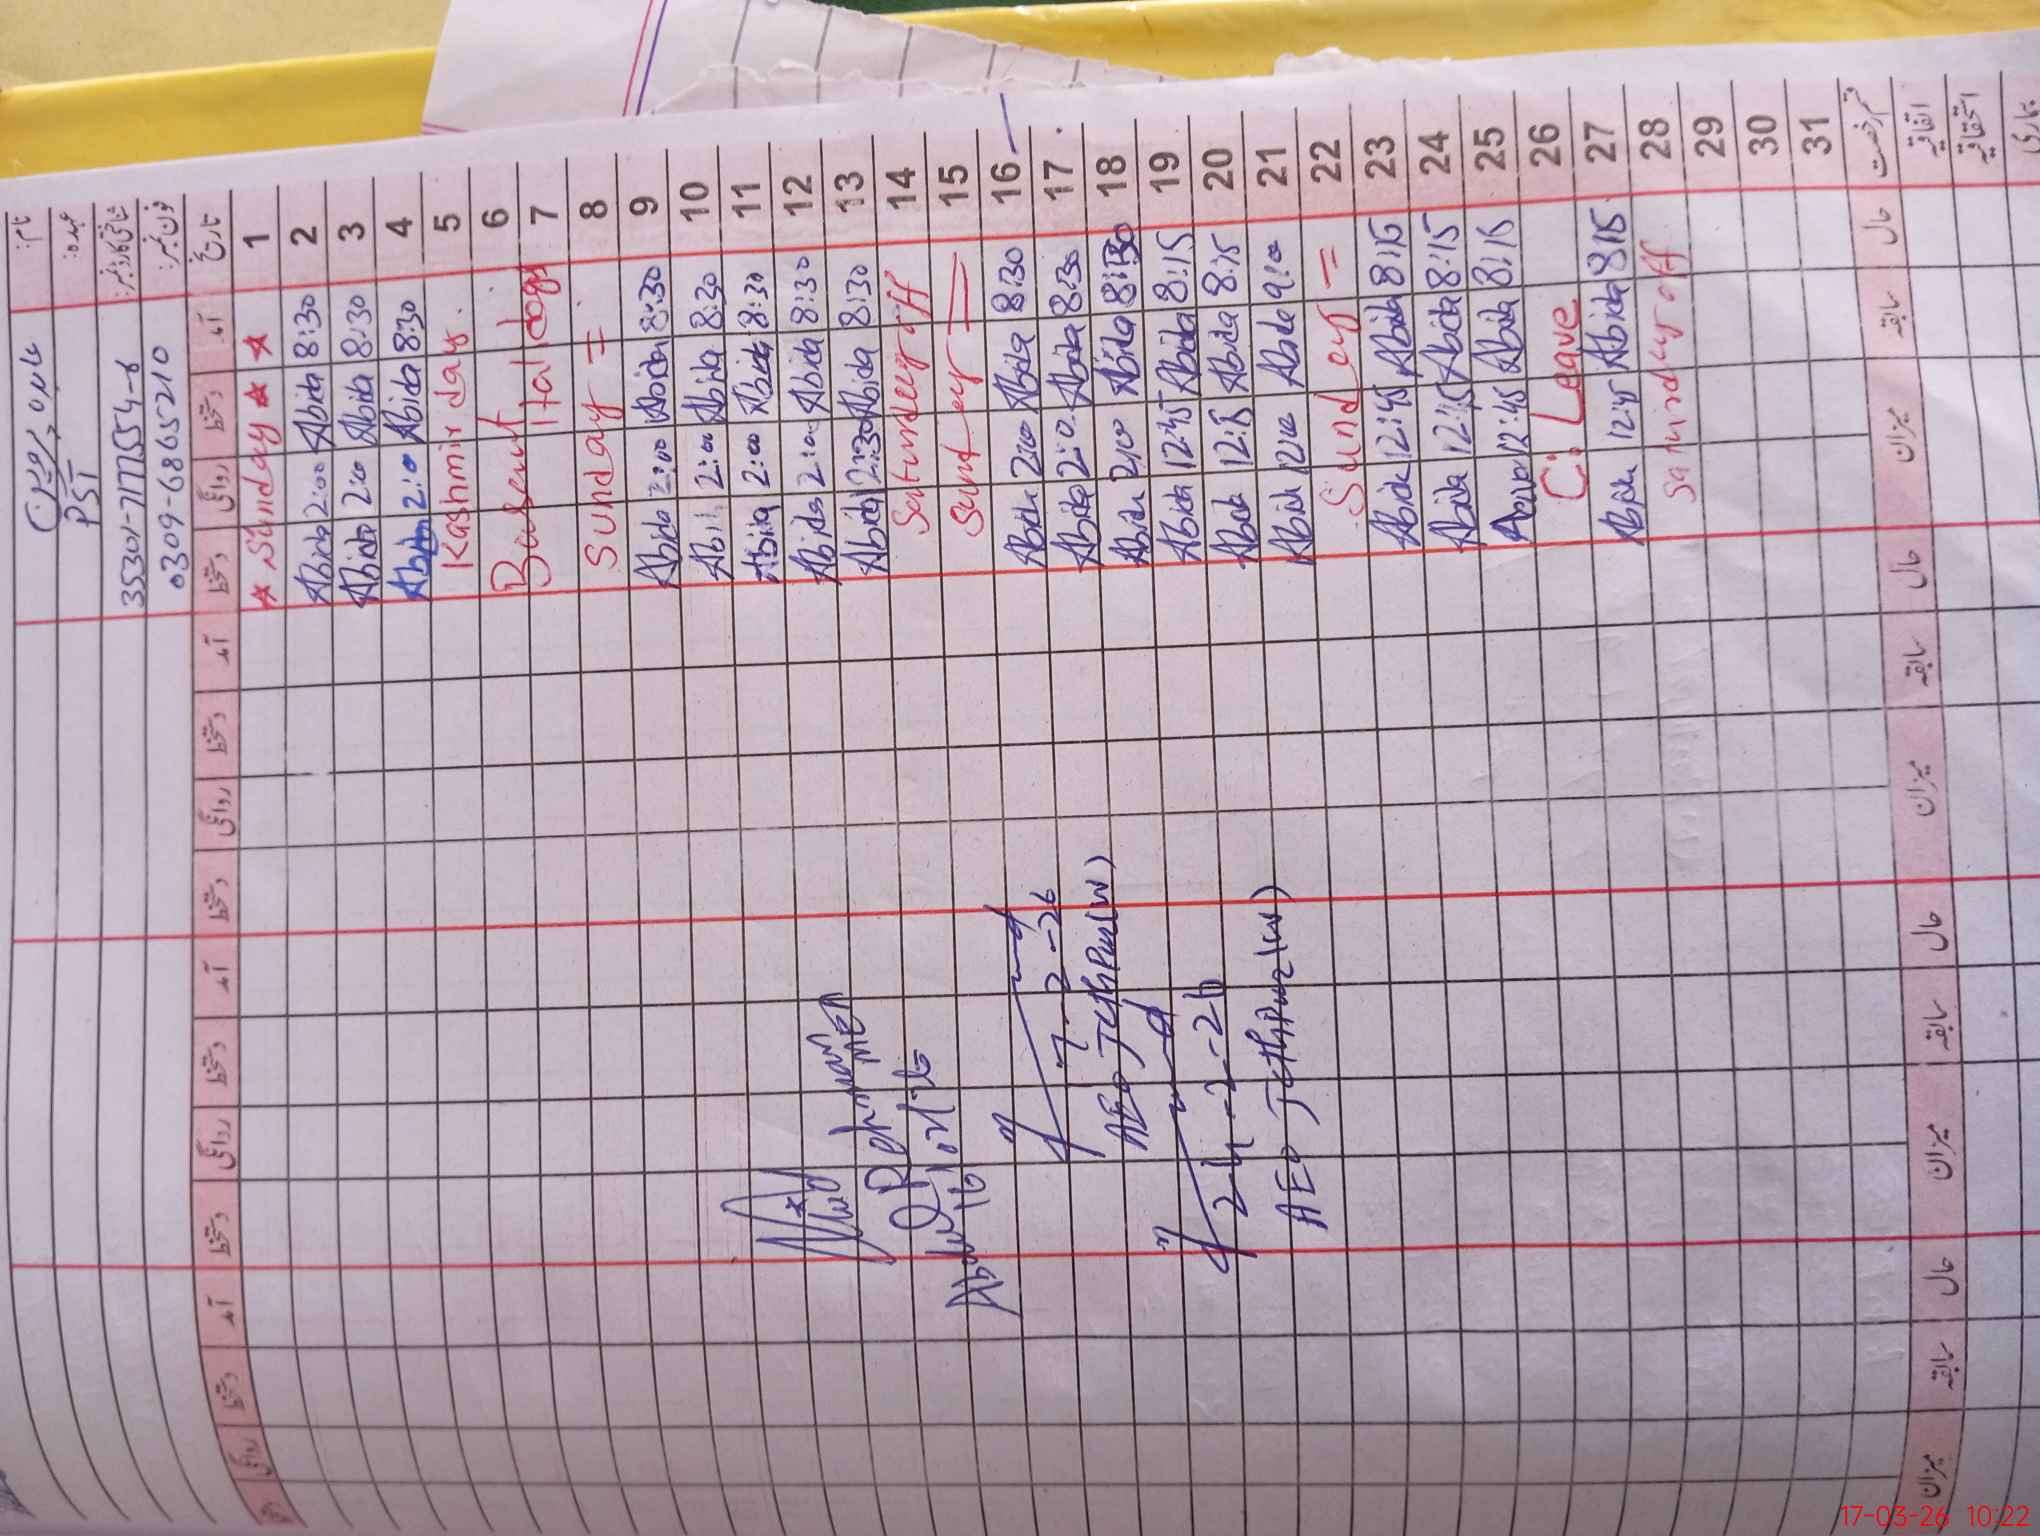 نام: عابدہ پروین
عہدہ: PST
شناختی کارڈ نمبر: 35301-7177554-8
فون نمبر: 0309-6865210
تاریخ آمد دستخط روانگی دستخط آمد دستخط روانگی دستخط آمد دستخط روانگی دستخط آمد دستخط روانگی
1 ★ ★ Sunday ★
2 8:30 Abida 2:00 Abida
3 8:30 Abida 2:00 Abida
4 8:30 Abida 2:00 Abida
5 Kashmir day.
6 Basent
7 Ital days
8 Sunday =
9 8:30 Abida 2:00 Abida
10 8:30 Abida 2:00 Abida
11 8:30 Abida 2:00 Abida
12 8:30 Abida 2:00 Abida
13 8:30 Abida 2:30 Abida
14 Saturday off
15 Sunday =
16 8:30 Abida 2:00 Abida
17 8:30 Abida 2:0 Abida
18 8:30 Abida 2:00 Abida
19 8:15 Abida 12:45 Abida
20 8:15 Abida Abida
21 9:00 Abida 12:00 Abida
22 Sunday =
23 8:15 Abida 12:45 Abida
24 8:15 Abida 12:45 Abida
25 8:15 Abida 12:45 Abida
26 C: Leave
27 8:15 Abida 12:45 Abida
28 Saturday off
29
30
31
قسم رخصت حال سابقہ میزان حال سابقہ میزان حال سابقہ میزان حال سابقہ میزان
اتفاقیہ
استحقاقیہ
MEA
Abdul Rehman
16/02/26
17-2-26
AEO Jethpur (W)
24-2-26
AEO Jethpur (W)
17-03-26 10:22